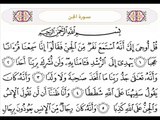 سورة الجن
بسم الله الرحمن الرحيم
قل أوحي إلي أنه استمع نفر من الجن فقالوا إنا سمعنا قرءانا
عجبا ١ يهدي إلى الرشد فـٔامنا به ولن نشرك بربنا أحدا ٢
وأنه تعلى جد ربنا ما اتخذ صحبة ولا ولدا ٣ وأنه كان يقول
سفيهنا على الله شططا ٤ وأنا ظننا أن لن تقول الإنس
والجن على الله كذبا ٥ وأنه كان رجال من الإنس يعوذون برجال